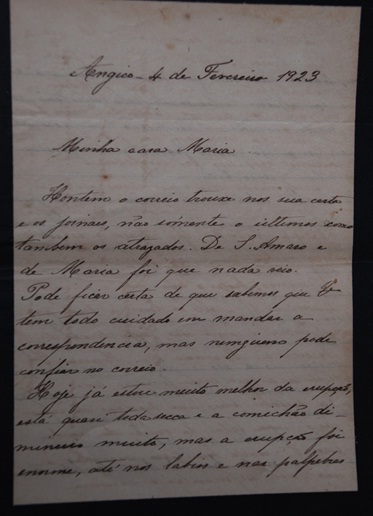 Angico - 4 de Fevereiro 1923
Minha cara Maria
Hontem o correio trouxe nos sua carta
e os jornais, não somente o ultimos como
tambem os atrazados. De S. Amaro e
de Maria foi que nada veio.
Pode ficar certa de que sabemos que V.
tem todo cuidado em mandar a
correspondencia, mas ninguem pode
confiar no correio.
Hoje já estou muito melhor da erupção,
está quasi toda secca e a comichão di-
minuiu muito, mas a erupção foi
enorme, até nos labios e nas palpebras